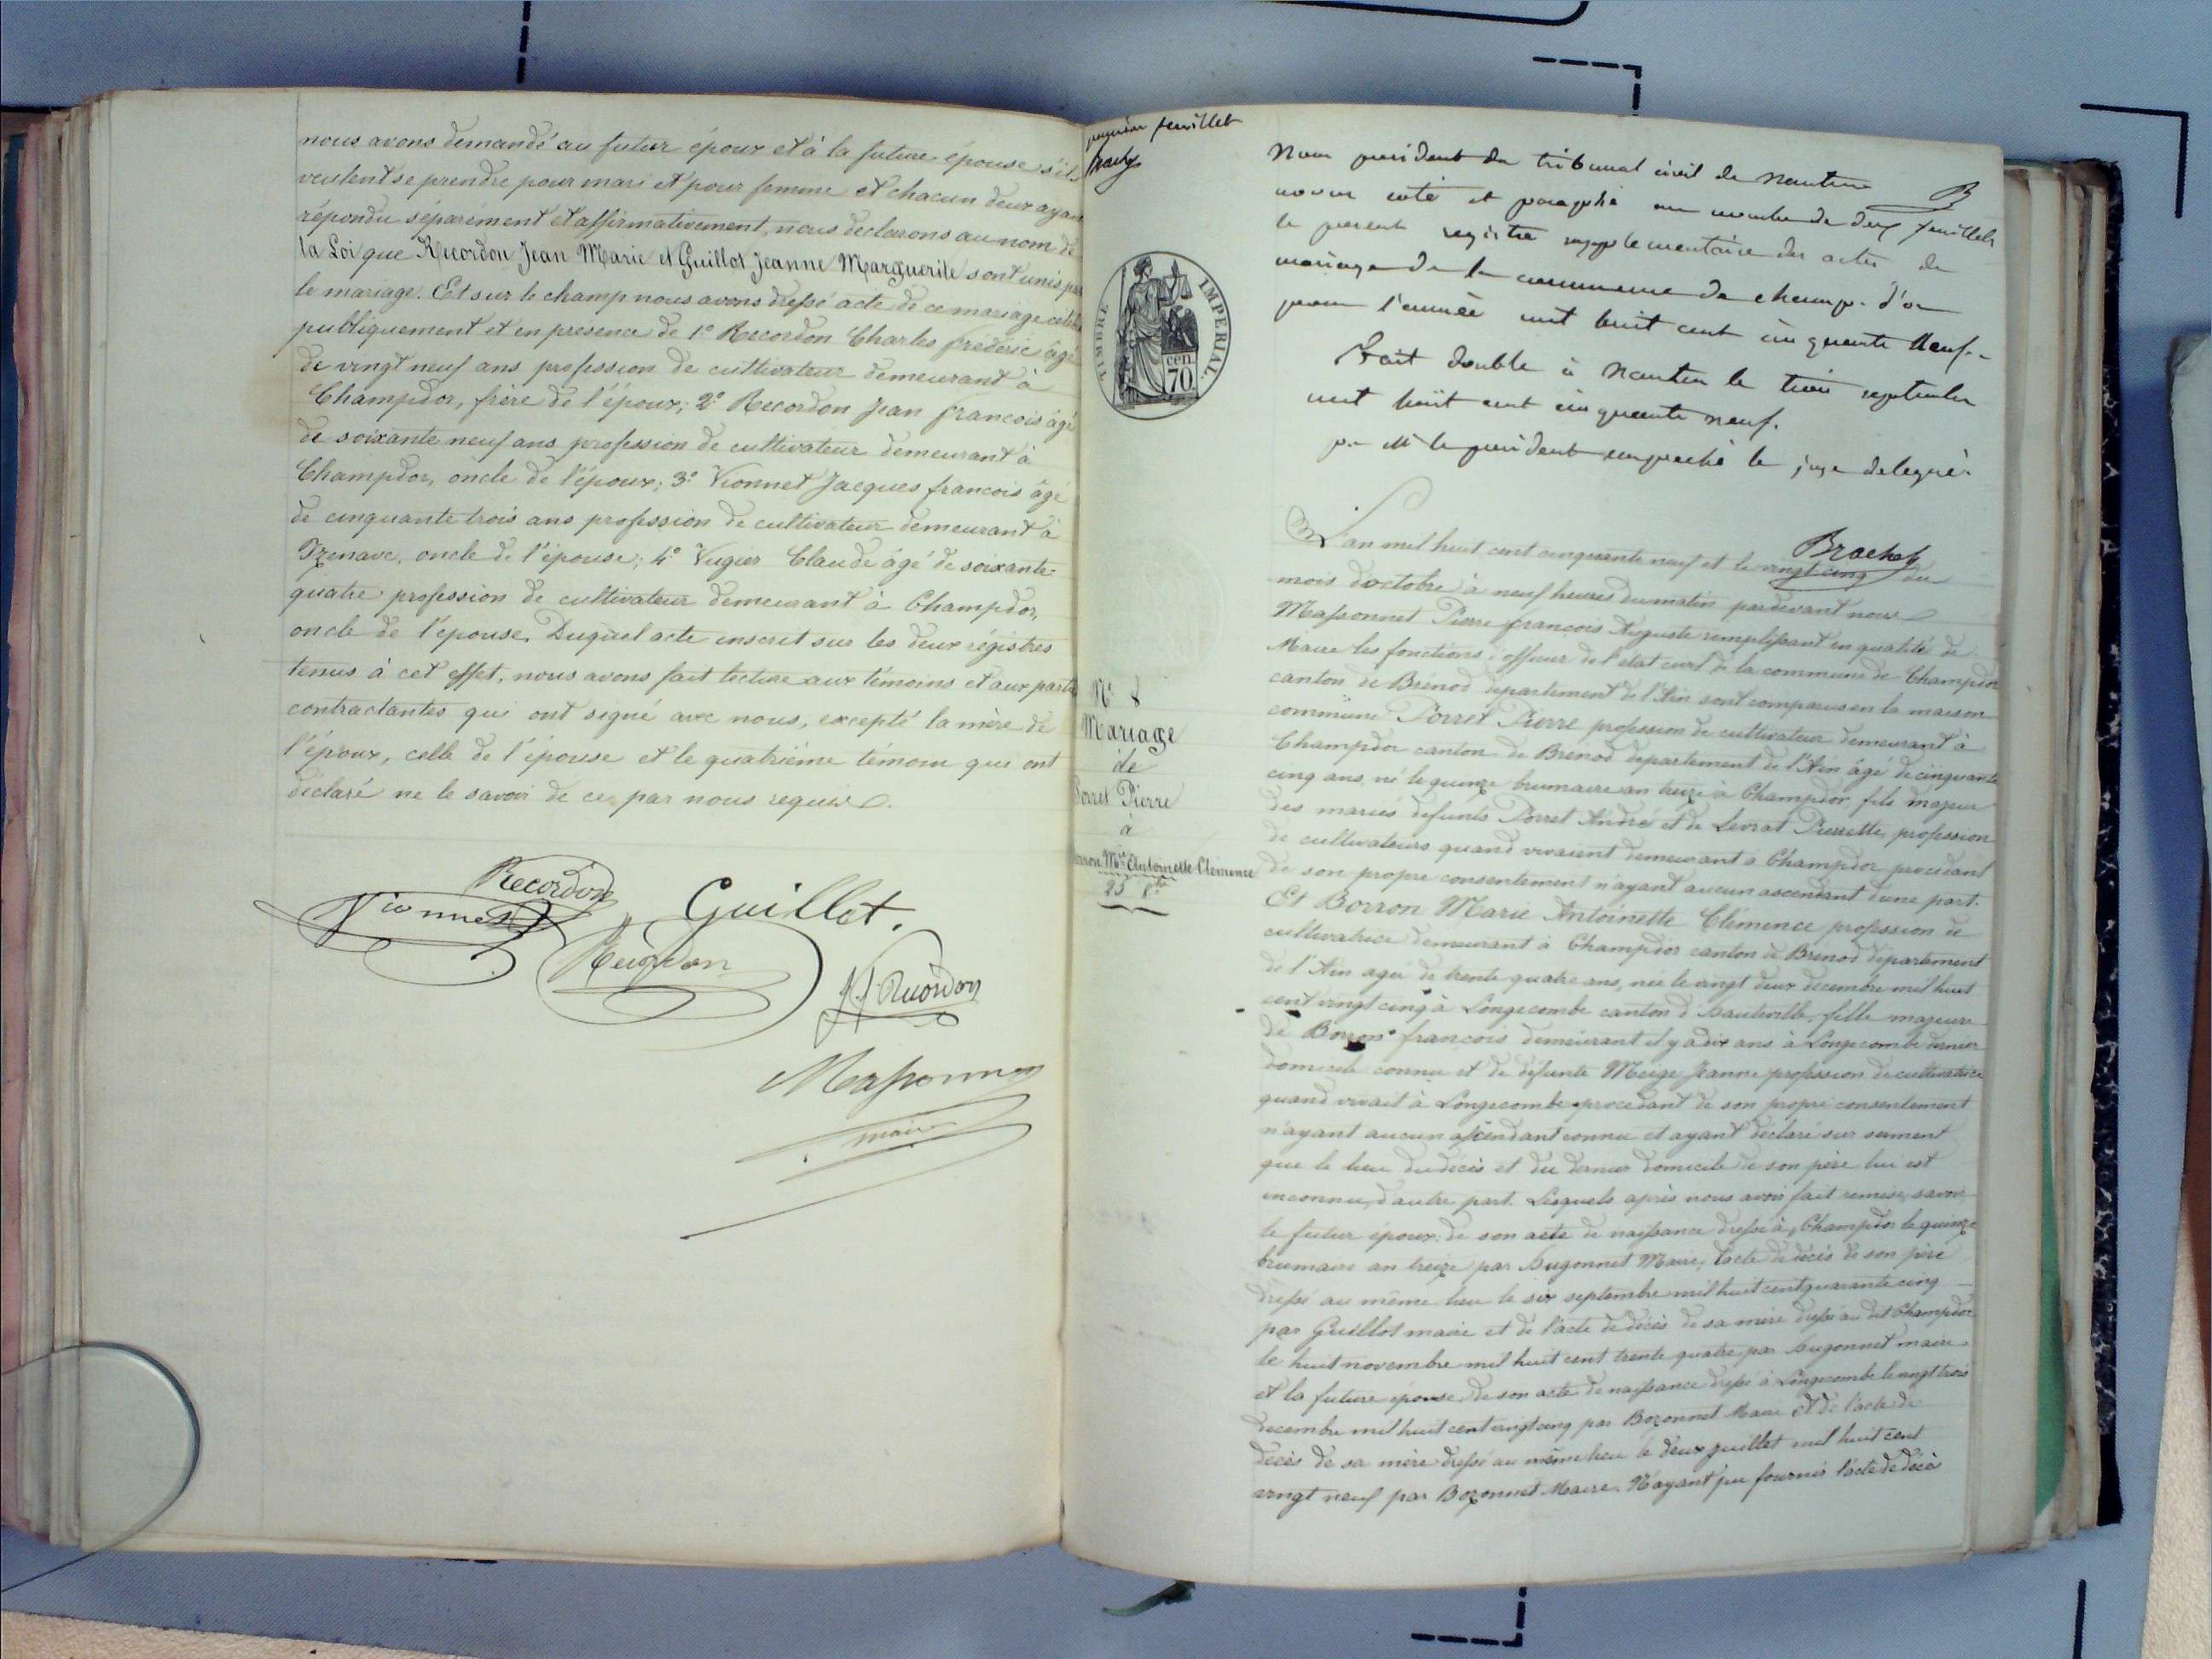 nous avons demandé au futur époux et à la future épouse s'ils
veulent se prendre pour mari et pour femme et chacun deux ayant
répondu séparément et affirmativement, nous déclarons au nom de
la Loi que Recordon Jean Marie et Guillot Jeanne Marguerite sont unis par
le mariage. Et sur le champ nous avons dressé acte de ce mariage célébré
publiquement et en presence de 1° Recordon Charles frédéric âgé
de vingt neuf ans profession de cultivateur demeurant à
Champdor, frère de l'époux; 2° Recordon Jean francois âgé
de soixante neuf ans profession de cultivateur demeurant à
Champdor, oncle de l'époux; 3° Vionnet Jacques francois âgé
de cinquante trois ans profession de cultivateur demeurant à
Izenave, oncle de l'épouse; 4° Claude âgé de soixante
quatre profession de cultivateur demeurant à Champdor,
oncle de l'épouse. Duquel acte inscrit sur les deux régistres
tenus à cet effet, nous avons fait lecture aux témoins et aux parties
contractantes qui ont signé avec nous, excepté la mère de
l'époux, celle de l'épouse et le quatrième témoin qui ont
déclaré ne le savoir de ce par nous requis.
Recordon
Vionnet
Guillot.
Recordon
Massonnet
maire
premier feuillet
TIMBRE IMPERIAL.
cen. 70
Nous president du tribunal civil de Nantua
avons coté et paraphé au nombre de deux feuillets
le present registre supplementaire des actes de
mariage de la commune de champ-d'or
pour l'année mil huit cent cinquante neuf.
Fait double à Nantua le trois septembre
mil huit cent cinquante neuf.
p. M. le president empeché le juge delegué.
N° 8
Mariage
de
Porret Pierre
à
Borron Mie Antoinette Clémence
25 8bre
L'an mil huit cent cinquante neuf et le vingt cinq du
mois d'octobre à neuf heures du matin pardevant nous
Massonnet Pierre francois Auguste remplissant en qualité de
Maire les fonctions d'officier de l'état civil de la commune de Champdor
canton de Brénod département de l'Ain sont comparus en la maison
commune Porret Pierre profession de cultivateur demeurant à
Champdor canton de Brénod département de l'Ain âgé de cinquante
cinq ans, né le quinze brumaire an treize à Champdor, fils majeur
des mariés défunts Porret André et de Levrat Pierrette, profession
de cultivateurs quand vivaient demeurant à Champdor procédant
de son propre consentement n'ayant aucun ascendant d'une part.
Et Borron Marie Antoinette Clémence profession de
cultivatrice demeurant à Champdor canton de Brénod département
de l'Ain agée de trente quatre ans, née le vingt deux decembre mil huit
cent vingt cinq à Longecombe canton d'hauteville, fille majeure
de Borron francois demeurant il y a dix ans à Longecombe dernier
domicile connu et de défunte Jeanne profession de cultivatrice
quand vivait à Longecombe procédant de son propre consentement
n'ayant aucun ascendant connu et ayant déclaré sur serment
que le lieu du décès et du dernier domicile de son père lui est
inconnu, d'autre part. Lesquels après nous avoir fait remise, savoir
le futur époux: de son acte de naissance dressé à Champdor le quinze
brumaire an treize par Hugonnet Maire, l'acte de décès de son père
dressé au même lieu le six septembre mil huit cent quarante cinq
par Guillot maire et de l'acte de décès de sa mère dressé au dit Champdor
le huit novembre mil huit cent trente quatre par Hugonnet maire
et la future épouse de son acte de naissance dressé à Longecombe le vingt trois
decembre mil huit cent vingt cinq par Bozonnet Maire et de l'acte de
décès de sa mère dressé au même lieu le deux juillet mil huit cent
vingt neuf par Bozonnet Maire. N'ayant pu fournir l'acte de décès